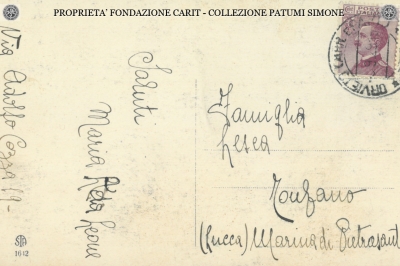 PROPRIETA' FONDAZIONE CARIT - COLLEZIONE PATUMI SIMONE
Via Adolfo Cozza 19-
Saluti
Maria Leone
Famiglia
Lesca
Tonfano
(Lucca) Marina di Pietrasant
ORVIETO
1642